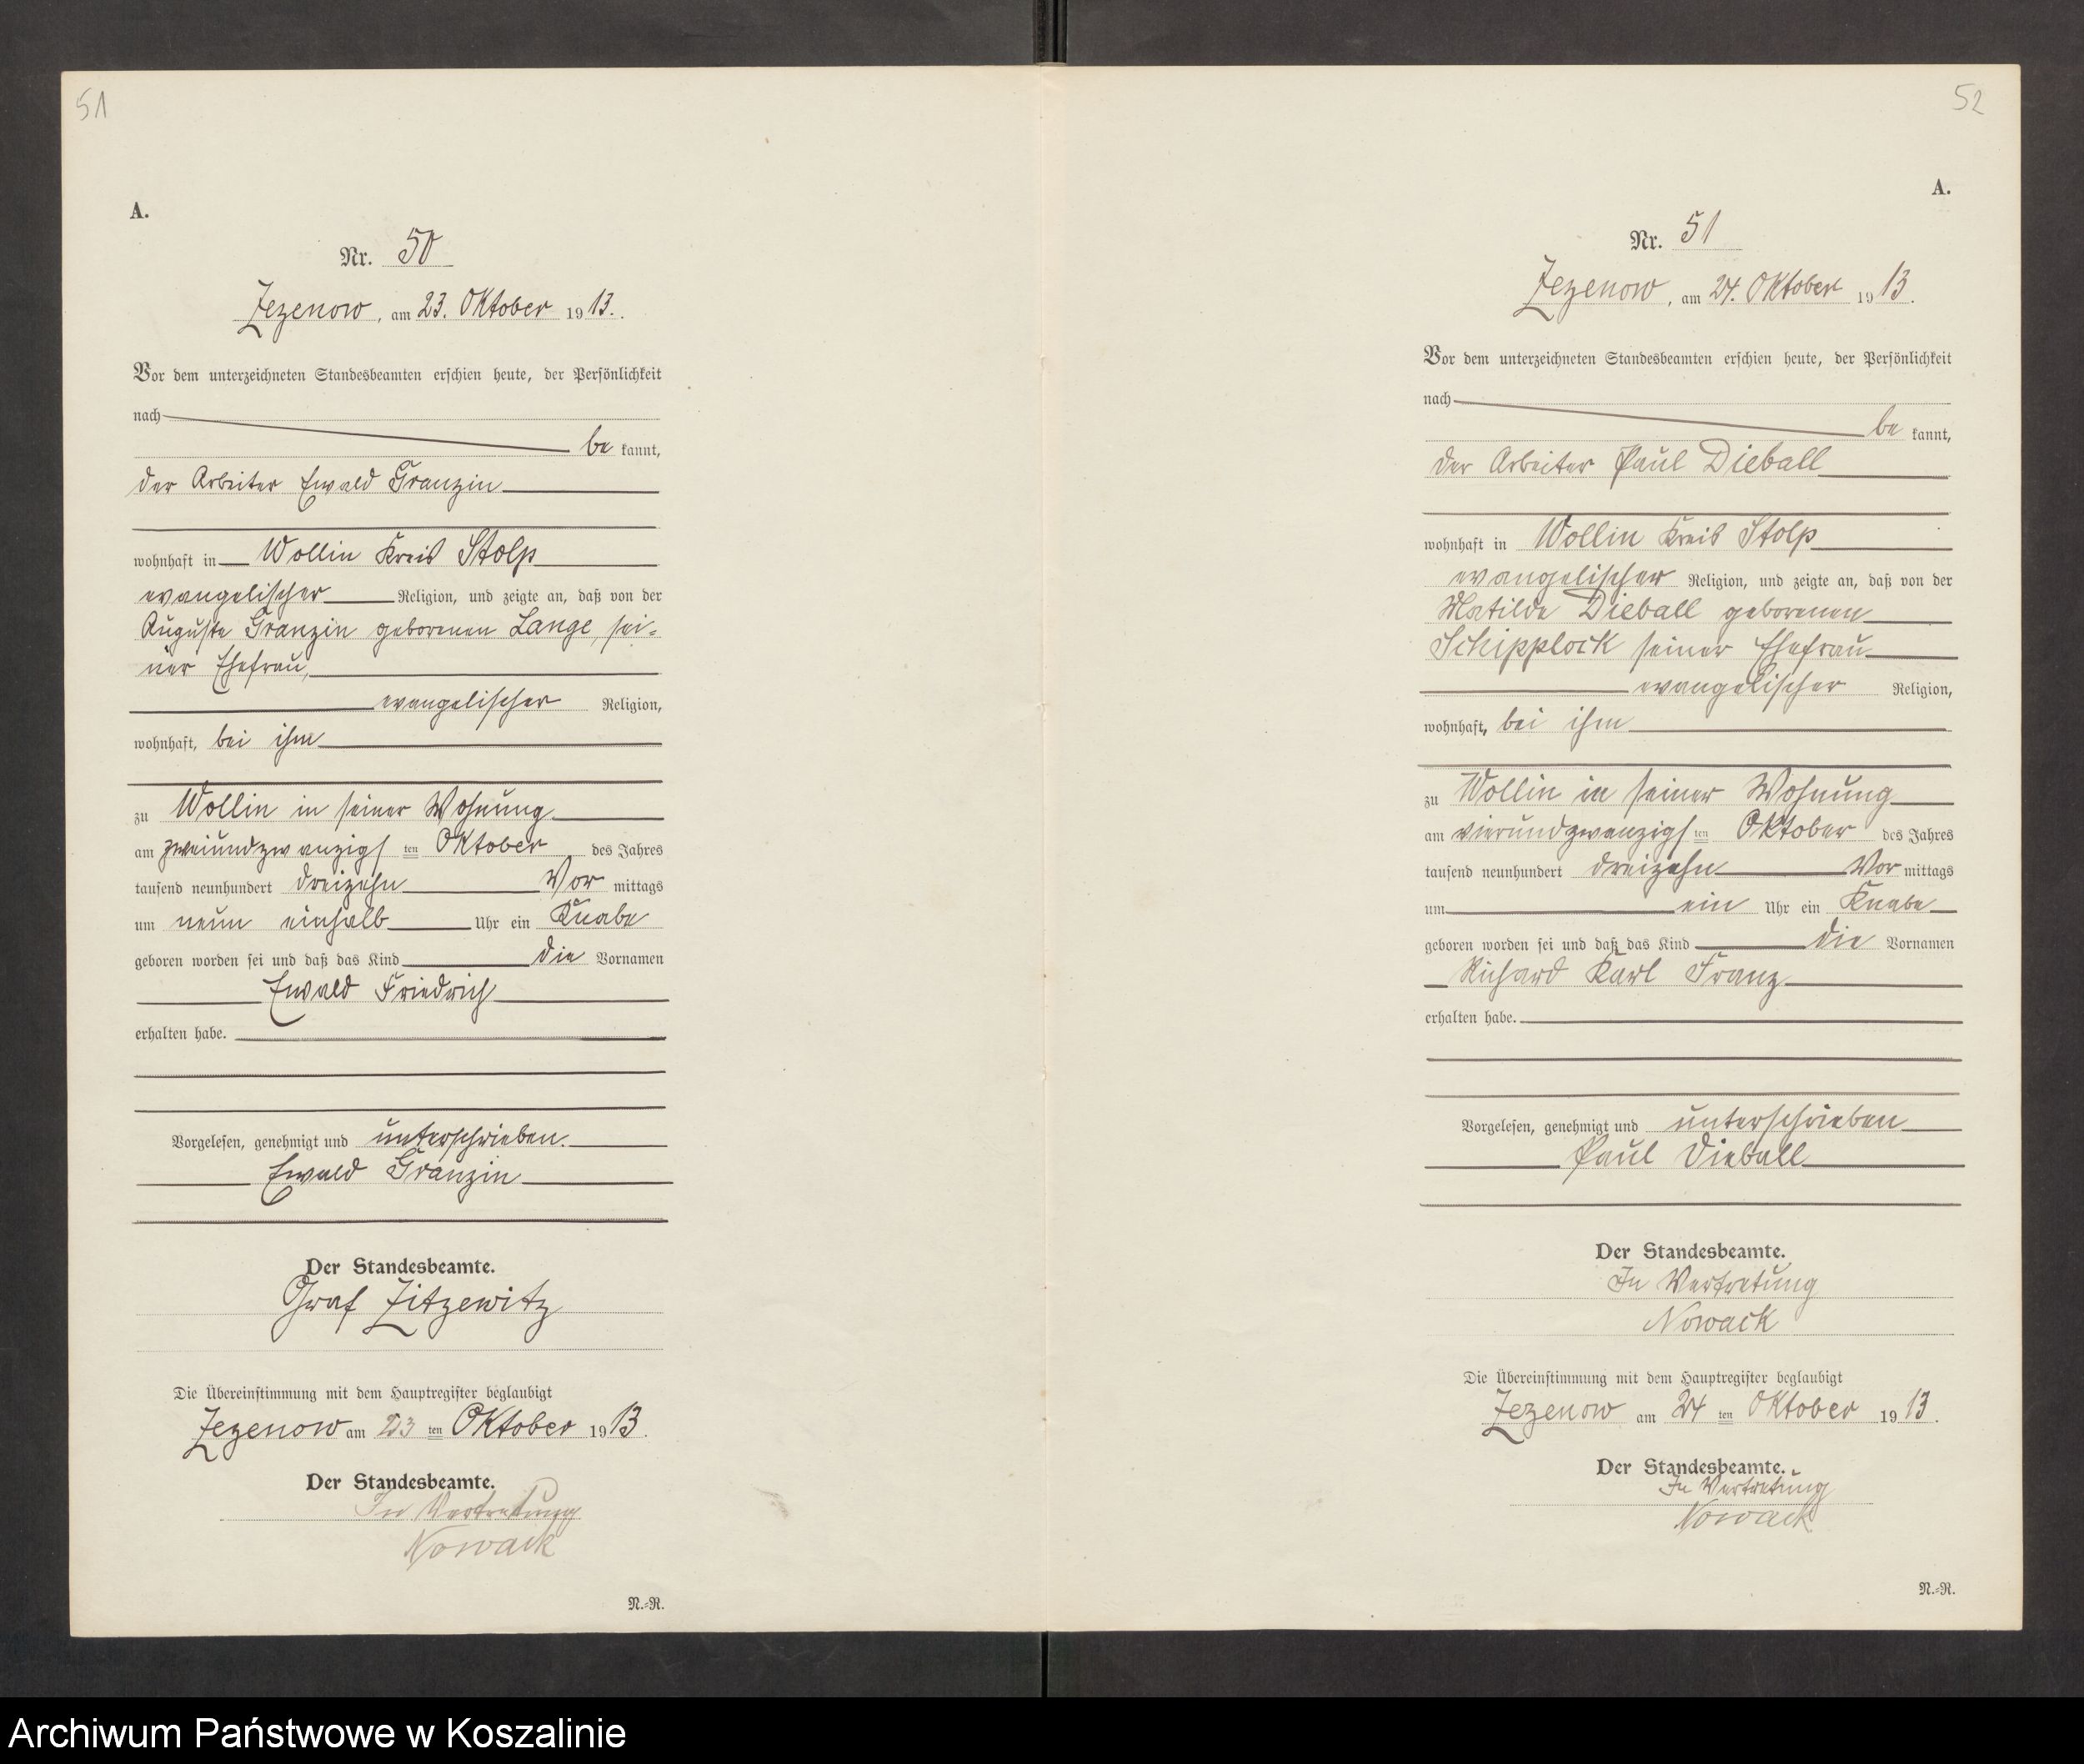 51
A.
Nr. 50
Zezenow, am 23. Oktober 1913.
Vor dem unterzeichneten Standesbeamten erschien heute, der Persönlichkeit
nach
be kannt,
der Arbeiter Ewald Granzin
wohnhaft in Wollin Kreis Stolp
evangelischer Religion, und zeigte an, daß von der
Auguste Granzin geborenen Lange, sei-
ner Ehefrau,
evangelischer Religion,
wohnhaft, bei ihm
zu Wollin in seiner Wohnung
am zweiundzwanzigs ten Oktober des Jahres
tausend neunhundert dreizehn Vor mittags
um neun einhalb Uhr ein Knabe
geboren worden sei und daß das Kind die Vornamen
Ewald Friedrich
erhalten habe.
Vorgelesen, genehmigt und unterschrieben.
Ewald Granzin
Der Standesbeamte.
Graf Zitzewitz
Die Übereinstimmung mit dem Hauptregister beglaubigt
Zezenow am 23 ten Oktober 1913.
Der Standesbeamte.
In Vertretung
Nowack
N.-R.
52
A.
Nr. 51
Zezenow, am 24. Oktober 1913.
Vor dem unterzeichneten Standesbeamten erschien heute, der Persönlichkeit
nach
be kannt,
der Arbeiter Paul Dieball
wohnhaft in Wollin Kreis Stolp
evangelischer Religion, und zeigte an, daß von der
Matilde Dieball geborenen
Schipplock seiner Ehefrau
evangelischer Religion,
wohnhaft, bei ihm
zu Wollin in seiner Wohnung
am vierundzwanzigs ten Oktober des Jahres
tausend neunhundert dreizehn Vor mittags
um ein Uhr ein Knabe
geboren worden sei und daß das Kind die Vornamen
Richard Karl Franz
erhalten habe.
Vorgelesen, genehmigt und unterschrieben
Paul Dieball
Der Standesbeamte.
In Vertretung
Nowack
Die Übereinstimmung mit dem Hauptregister beglaubigt
Zezenow am 24 ten Oktober 1913.
Der Standesbeamte.
In Vertretung
Nowack
N.-R.
Archiwum Państwowe w Koszalinie